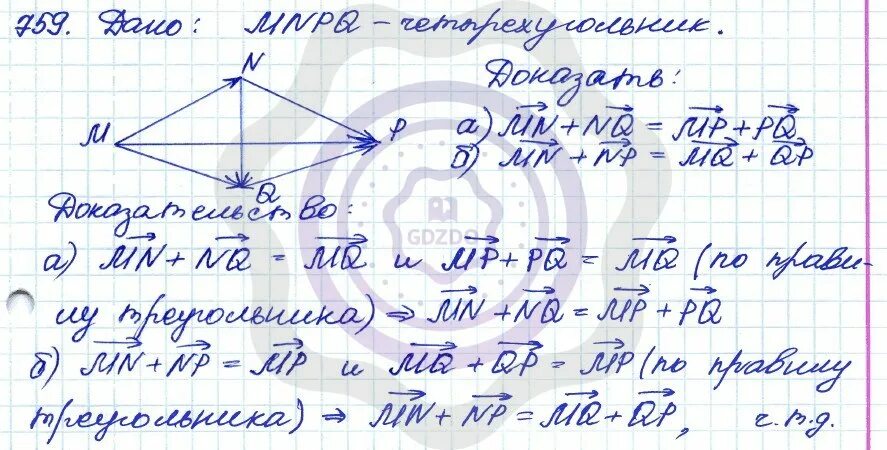 759. Дано: MNPQ – четырехугольник.
N
M
P
Q
Доказать:
а) MN + NQ = MP + PQ
б) MN + NP = MQ + QP
GDZDO
Доказательство:
а) MN + NQ = MQ и MP + PQ = MQ (по прави-
лу треугольника) ⇒ MN + NQ = MP + PQ
б) MN + NP = MP и MQ + QP = MP (по правилу
треугольника) ⇒ MN + NP = MQ + QP, ч.т.д.